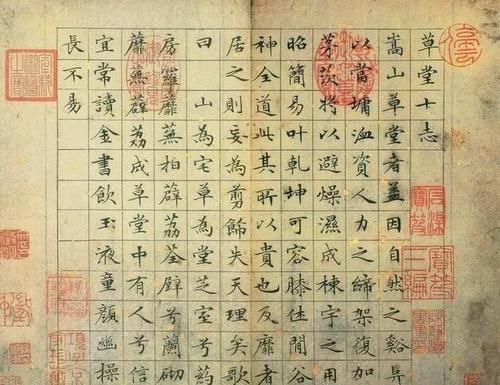 草堂十志
嵩山草堂者盖因自然之谿阜
以當墉洫資人力之締架復加
茅茨將以避燥濕成棟宇之用
昭簡易叶乾坤可容膝休閒谷
神全道此其所以貴也及靡者
居之則妄為剪飾失天理矣歌
曰 山為宅草為堂芝室兮藥
房羅蘼蕪拍薜荔荃壁兮蘭砌
蘼蕪薜荔成草堂中有人兮信
宜常讀金書飲玉液童顏幽操
長不易